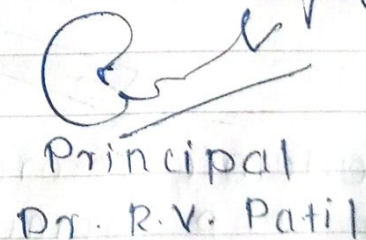 Principal
Dr. R.V. Patil